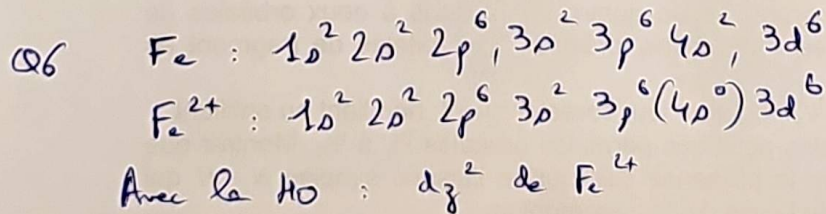 Q6 Fe : 1s² 2s² 2p⁶, 3s² 3p⁶ 4s², 3d⁶
Fe²⁺ : 1s² 2s² 2p⁶ 3s² 3p⁶ (4s⁰) 3d⁶
Avec la HO : dz² de Fe²⁺